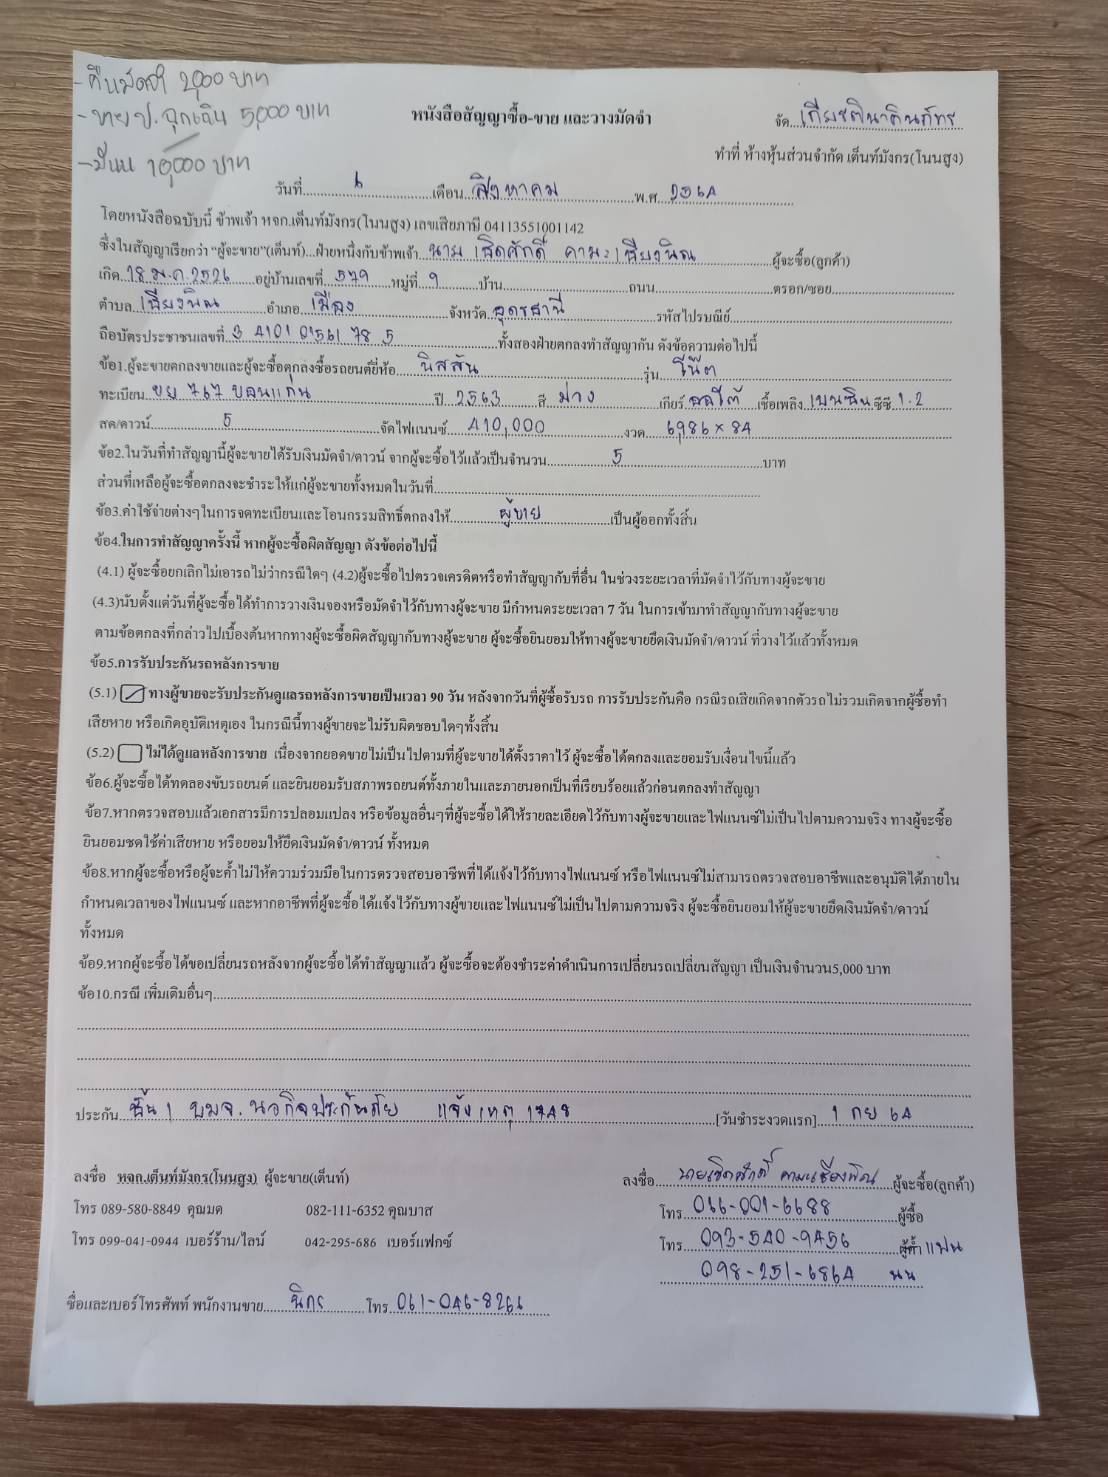 -คืนมัดจำ 2,000 บาท
-ขาย ป. ฉุกเฉิน 5,000 บาท
- 10,000 บาท
หนังสือสัญญาซื้อ-ขาย และวางมัดจำ
จัด เกียรตินาคินภัทร
ทำที่ ห้างหุ้นส่วนจำกัด เต็นท์มังกร(โนนสูง)
วันที่ 6 เดือน สิงหาคม พ.ศ. 2564
โดยหนังสือฉบับนี้ ข้าพเจ้า หจก.เต็นท์มังกร(โนนสูง) เลขเสียภาษี 04113551001142
ซึ่งในสัญญาเรียกว่า "ผู้จะขาย"(เต็นท์)...ฝ่ายหนึ่งกับข้าพเจ้า นาย เชิดศักดิ์ คามะเชียงพิณ ผู้จะซื้อ(ลูกค้า)
เกิด 18 ม.ค. 2526 อยู่บ้านเลขที่ 579 หมู่ที่ 9 บ้าน ถนน ตรอก/ซอย
ตำบล เชียงพิณ อำเภอ เมือง จังหวัด อุดรธานี รหัสไปรษณีย์
ถือบัตรประชาชนเลขที่ 3 4101 01561 78 5 ทั้งสองฝ่ายตกลงทำสัญญากัน ดังข้อความต่อไปนี้
ข้อ1.ผู้จะขายตกลงขายและผู้จะซื้อตกลงซื้อรถยนต์ยี่ห้อ นิสสัน รุ่น โน๊ต
ทะเบียน ขย 767 ขอนแก่น ปี 2563 สี ม่วง เกียร์ ออโต้ เชื้อเพลิง เบนซิน ซีซี 1.2
สด/ดาวน์ 5 จัดไฟแนนซ์ 410,000 งวด 6,986 × 84
ข้อ2.ในวันที่ทำสัญญานี้ผู้จะขายได้รับเงินมัดจำ/ดาวน์ จากผู้จะซื้อไว้แล้วเป็นจำนวน 5 บาท
ส่วนที่เหลือผู้จะซื้อตกลงจะชำระให้แก่ผู้จะขายทั้งหมดในวันที่
ข้อ3.ค่าใช้จ่ายต่างๆในการจดทะเบียนและโอนกรรมสิทธิ์ตกลงให้ ผู้ขาย เป็นผู้ออกทั้งสิ้น
ข้อ4.ในการทำสัญญาครั้งนี้ หากผู้จะซื้อผิดสัญญา ดังข้อต่อไปนี้
(4.1) ผู้จะซื้อยกเลิกไม่เอารถไม่ว่ากรณีใดๆ (4.2)ผู้จะซื้อไปตรวจเครดิตหรือทำสัญญากับที่อื่น ในช่วงระยะเวลาที่มัดจำไว้กับทางผู้จะขาย
(4.3)นับตั้งแต่วันที่ผู้จะซื้อได้ทำการวางเงินจองหรือมัดจำไว้กับทางผู้จะขาย มีกำหนดระยะเวลา 7 วัน ในการเข้ามาทำสัญญากับทางผู้จะขาย
ตามข้อตกลงที่กล่าวไปเบื้องต้นหากทางผู้จะซื้อผิดสัญญากับทางผู้จะขาย ผู้จะซื้อยินยอมให้ทางผู้จะขายยึดเงินมัดจำ/ดาวน์ ที่วางไว้แล้วทั้งหมด
ข้อ5.การรับประกันรถหลังการขาย
(5.1) ทางผู้ขายจะรับประกันดูแลรถหลังการขายเป็นเวลา 90 วัน หลังจากวันที่ผู้ซื้อรับรถ การรับประกันคือ กรณีรถเสียเกิดจากตัวรถไม่รวมเกิดจากผู้ซื้อทำ
เสียหาย หรือเกิดอุบัติเหตุเอง ในกรณีนี้ทางผู้ขายจะไม่รับผิดชอบใดๆทั้งสิ้น
(5.2) ไม่ได้ดูแลหลังการขาย เนื่องจากยอดขายไม่เป็นไปตามที่ผู้จะขายได้ตั้งราคาไว้ ผู้จะซื้อได้ตกลงและยอมรับเงื่อนไขนี้แล้ว
ข้อ6.ผู้จะซื้อได้ทดลองขับรถยนต์ และยินยอมรับสภาพรถยนต์ทั้งภายในและภายนอกเป็นที่เรียบร้อยแล้วก่อนตกลงทำสัญญา
ข้อ7.หากตรวจสอบแล้วเอกสารมีการปลอมแปลง หรือข้อมูลอื่นๆที่ผู้จะซื้อได้ให้รายละเอียดไว้กับทางผู้จะขายและไฟแนนซ์ไม่เป็นไปตามความจริง ทางผู้จะซื้อ
ยินยอมชดใช้ค่าเสียหาย หรือยอมให้ยึดเงินมัดจำ/ดาวน์ ทั้งหมด
ข้อ8.หากผู้จะซื้อหรือผู้จะค้ำไม่ให้ความร่วมมือในการตรวจสอบอาชีพที่ได้แจ้งไว้กับทางไฟแนนซ์ หรือไฟแนนซ์ไม่สามารถตรวจสอบอาชีพและอนุมัติได้ภายใน
กำหนดเวลาของไฟแนนซ์ และหากอาชีพที่ผู้จะซื้อได้แจ้งไว้กับทางผู้ขายและไฟแนนซ์ไม่เป็นไปตามความจริง ผู้จะซื้อยินยอมให้ผู้จะขายยึดเงินมัดจำ/ดาวน์
ทั้งหมด
ข้อ9.หากผู้จะซื้อได้ขอเปลี่ยนรถหลังจากผู้จะซื้อได้ทำสัญญาแล้ว ผู้จะซื้อจะต้องชำระค่าดำเนินการเปลี่ยนรถเปลี่ยนสัญญา เป็นเงินจำนวน5,000 บาท
ข้อ10.กรณี เพิ่มเติมอื่นๆ
ประกัน ชั้น 1 บมจ. นวกิจประกันภัย แจ้งเหตุ 1748 [วันชำระงวดแรก] 1 กย 64
ลงชื่อ หจก.เต็นท์มังกร(โนนสูง) ผู้จะขาย(เต็นท์)
ลงชื่อ นายเชิดศักดิ์ คามะเชียงพิณ ผู้จะซื้อ(ลูกค้า)
โทร 089-580-8849 คุณมด 082-111-6352 คุณบาส
โทร. 066-001-6688 ผู้ซื้อ
โทร 099-041-0944 เบอร์ร้าน/ไลน์ 042-295-686 เบอร์แฟกซ์
โทร. 093-540-9456 ผู้ค้ำ แฟน
098-251-6864
ชื่อและเบอร์โทรศัพท์ พนักงานขาย นิกร โทร. 061-046-8266